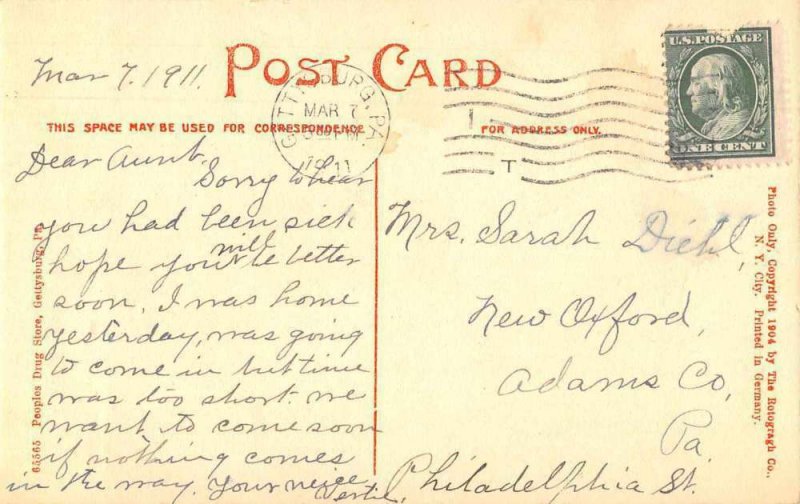 Mar 7. 1911.
POST CARD
GETTYSBURG, PA.
MAR 7
PM
1911
U.S. POSTAGE
ONE CENT
THIS SPACE MAY BE USED FOR CORRESPONDENCE
FOR ADDRESS ONLY.
Dear Aunt.
Sorry to hear
you had been sick
hope you will be better
soon. I was home
yesterday, was going
to come in but time
was too short. we
want to come soon
if nothing comes
in the way. Your neice
Mrs. Sarah Diehl,
New Oxford,
Adams Co,
Pa.
Philadelphia St.
65565 Peoples Drug Store, Gettysburg, Pa.
Photo Only, Copyright 1904 by The Rotograph Co.,
N. Y. City. Printed in Germany.